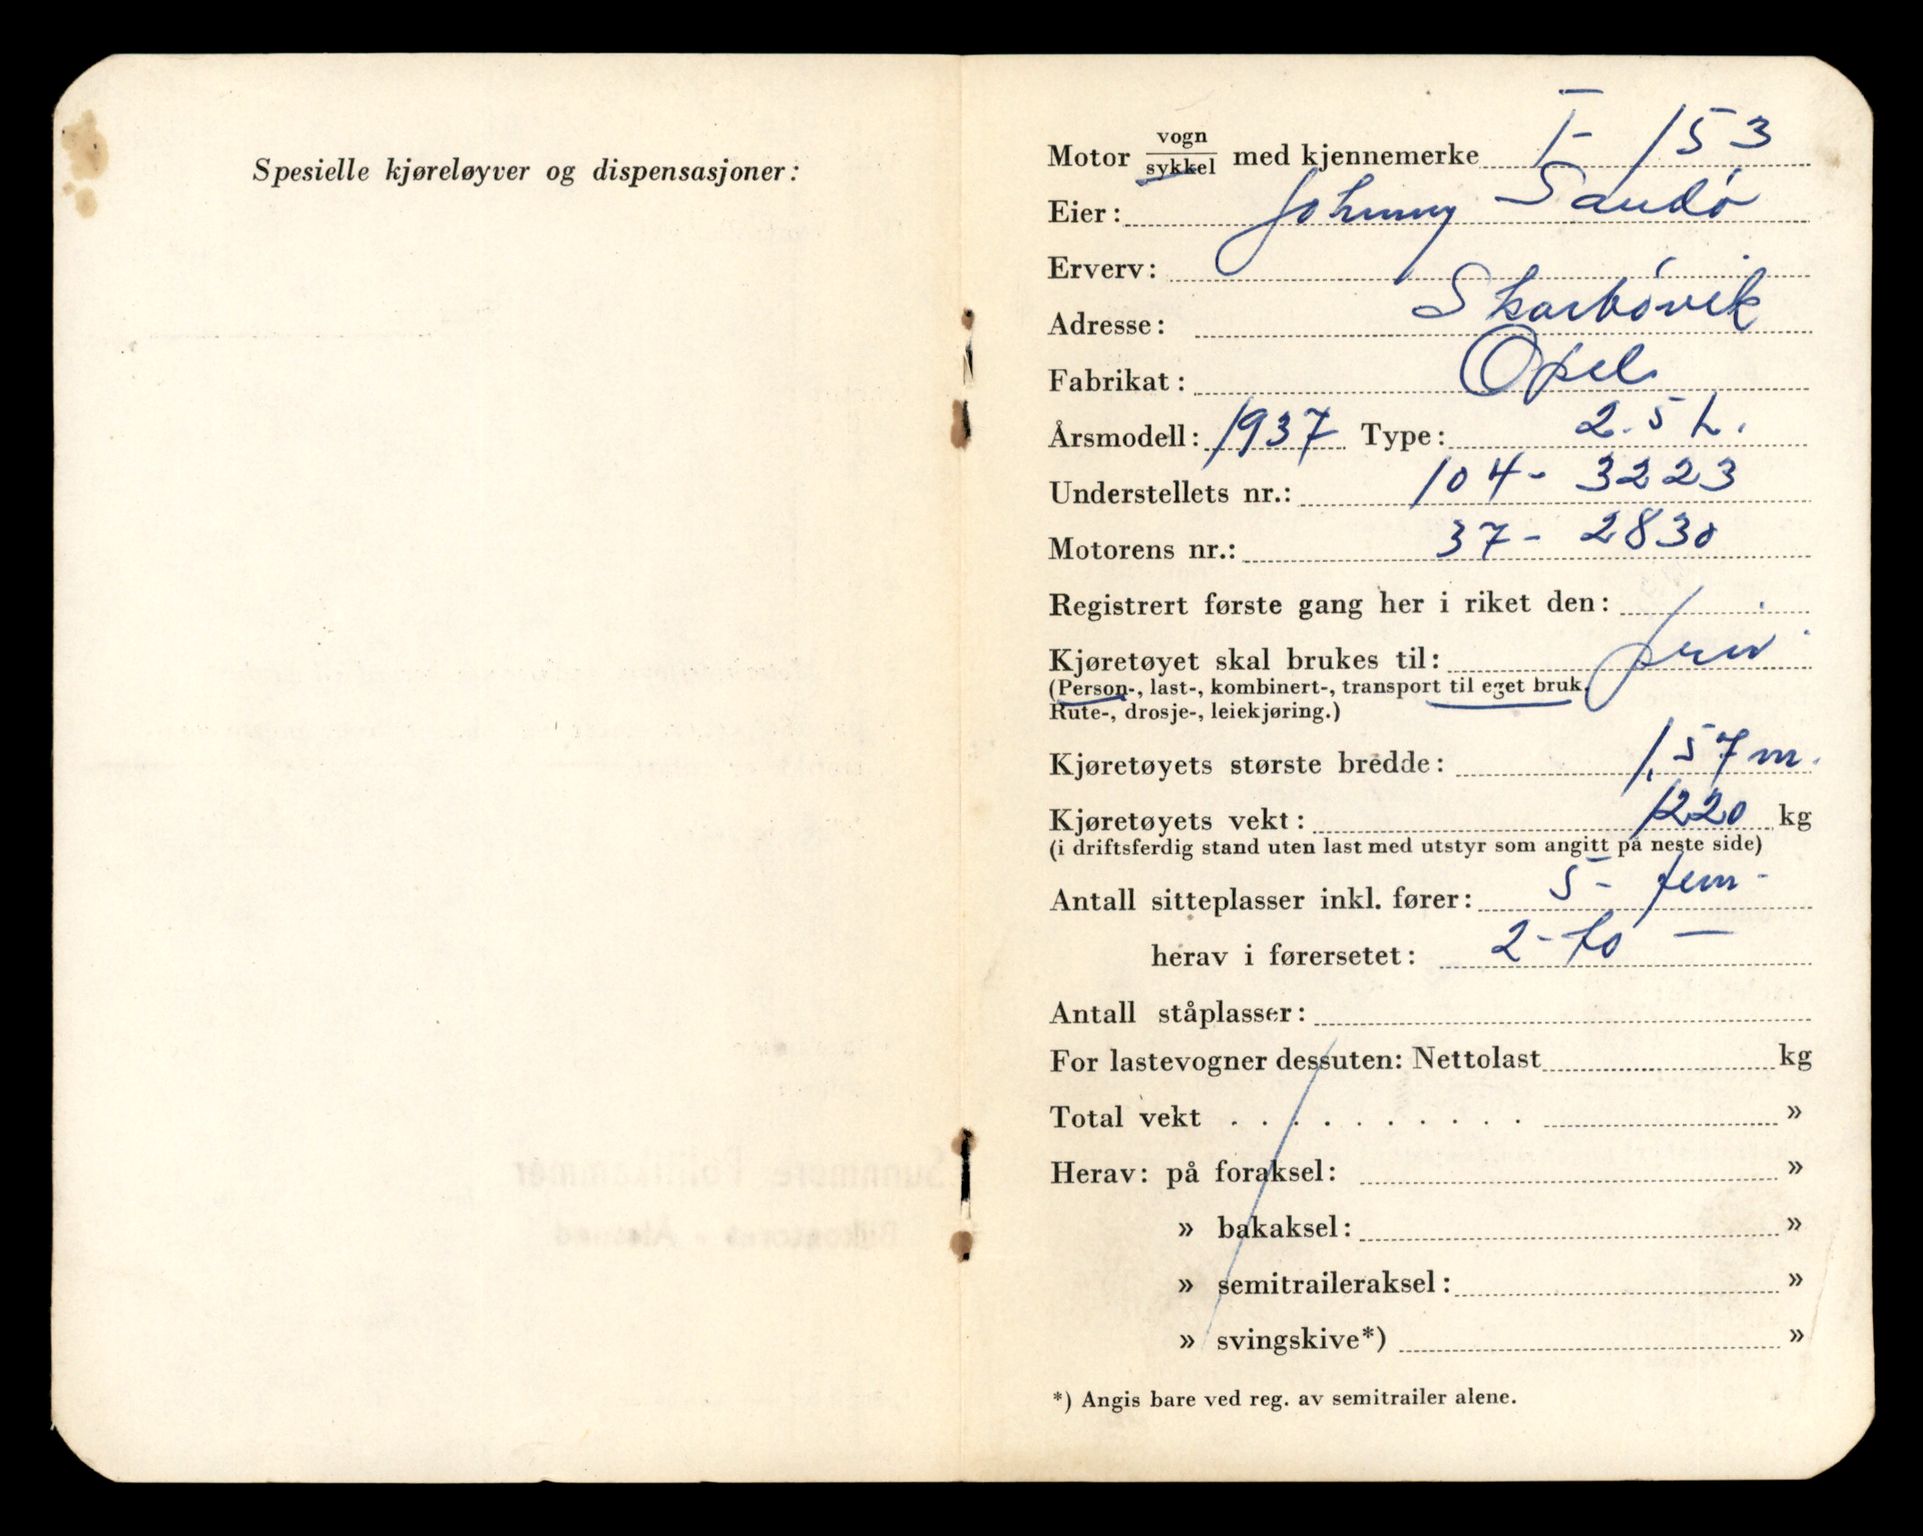 Spesielle kjøreløyver og dispensasjoner:
Motor vogn/sykkel med kjennemerke T- 153
Eier: Johnny Sandø
Erverv:
Adresse: Skarbøvik
Fabrikat: Opel
Årsmodell: 1937 Type: 2.5 L.
Understellets nr.: 104- 3223
Motorens nr.: 37- 2830
Registrert første gang her i riket den:
Kjøretøyet skal brukes til: priv
(Person-, last-, kombinert-, transport til eget bruk.
Rute-, drosje-, leiekjøring.)
Kjøretøyets største bredde: 1,57 m.
Kjøretøyets vekt: 1220 kg
(i driftsferdig stand uten last med utstyr som angitt på neste side)
Antall sitteplasser inkl. fører: 5- fem-
herav i førersetet: 2- to —
Antall ståplasser:
For lastevogner dessuten: Nettolast kg
Total vekt . . . . . . . . . . »
Herav: på foraksel: »
» bakaksel: »
» semitraileraksel: »
» svingskive*) »
*) Angis bare ved reg. av semitrailer alene.